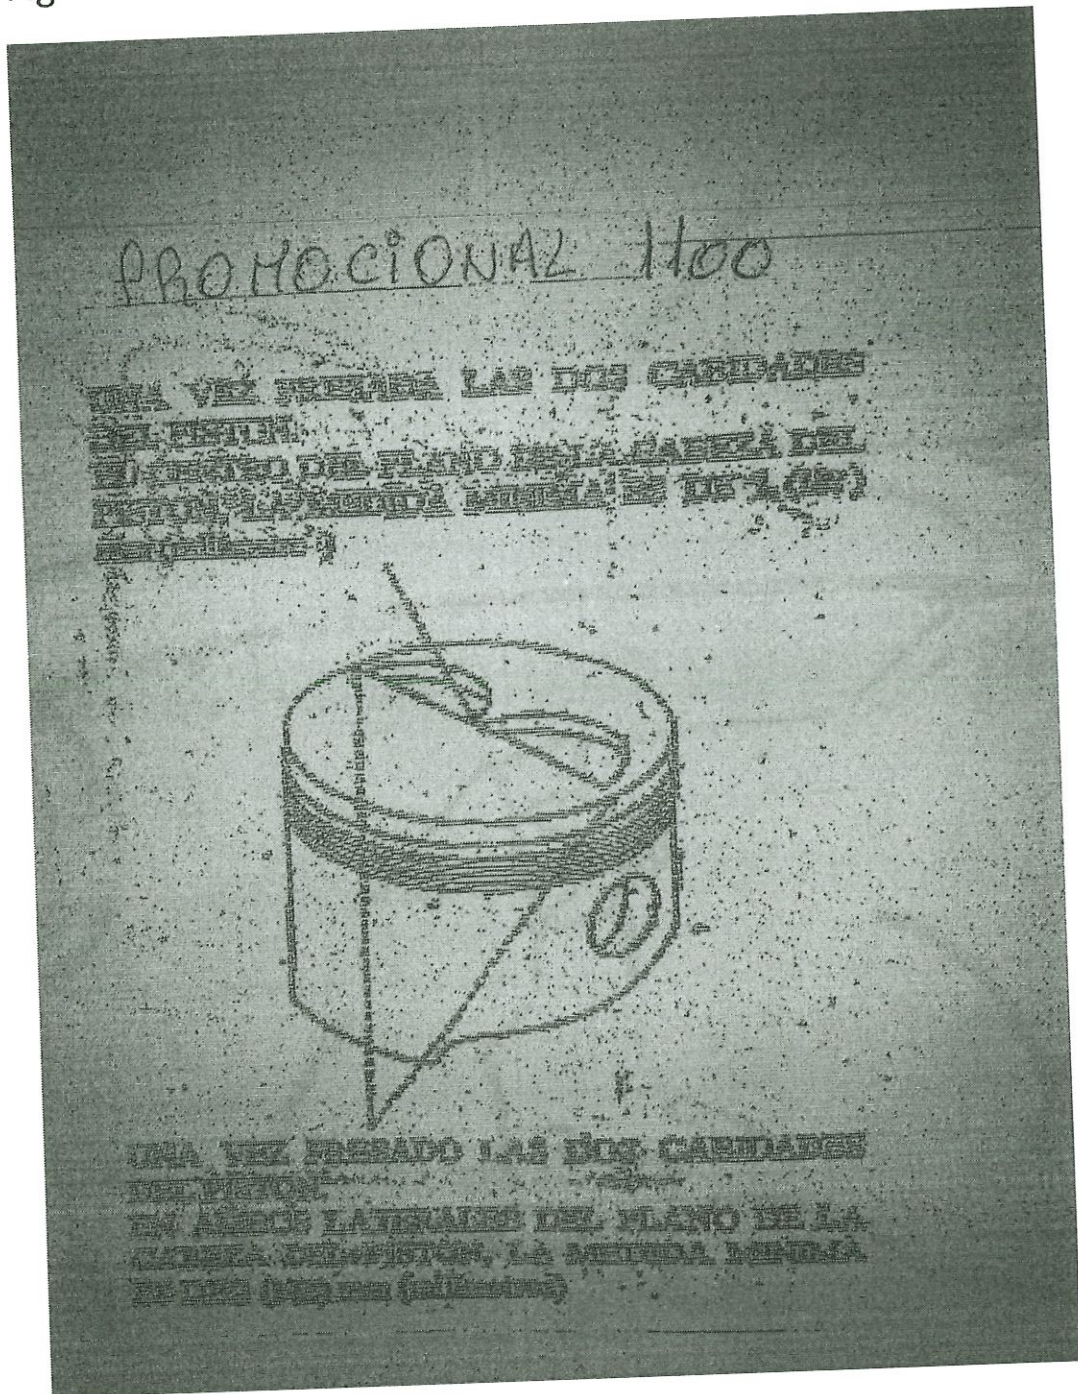 PROMOCIONAL 1100
UNA VEZ LAS DOS CABIDADES
DEL PISTON
DEL PLANO DE LA CABEZA DEL
PISTON, LA MEDIDA MINIMA ES DE
UNA VEZ FRESADO LAS DOS CABIDADES
DEL PISTON
EN AMBOS LATERALES DEL PLANO DE LA
CABEZA DEL PISTON, LA MEDIDA MINIMA
ES DE mm (milimetros)